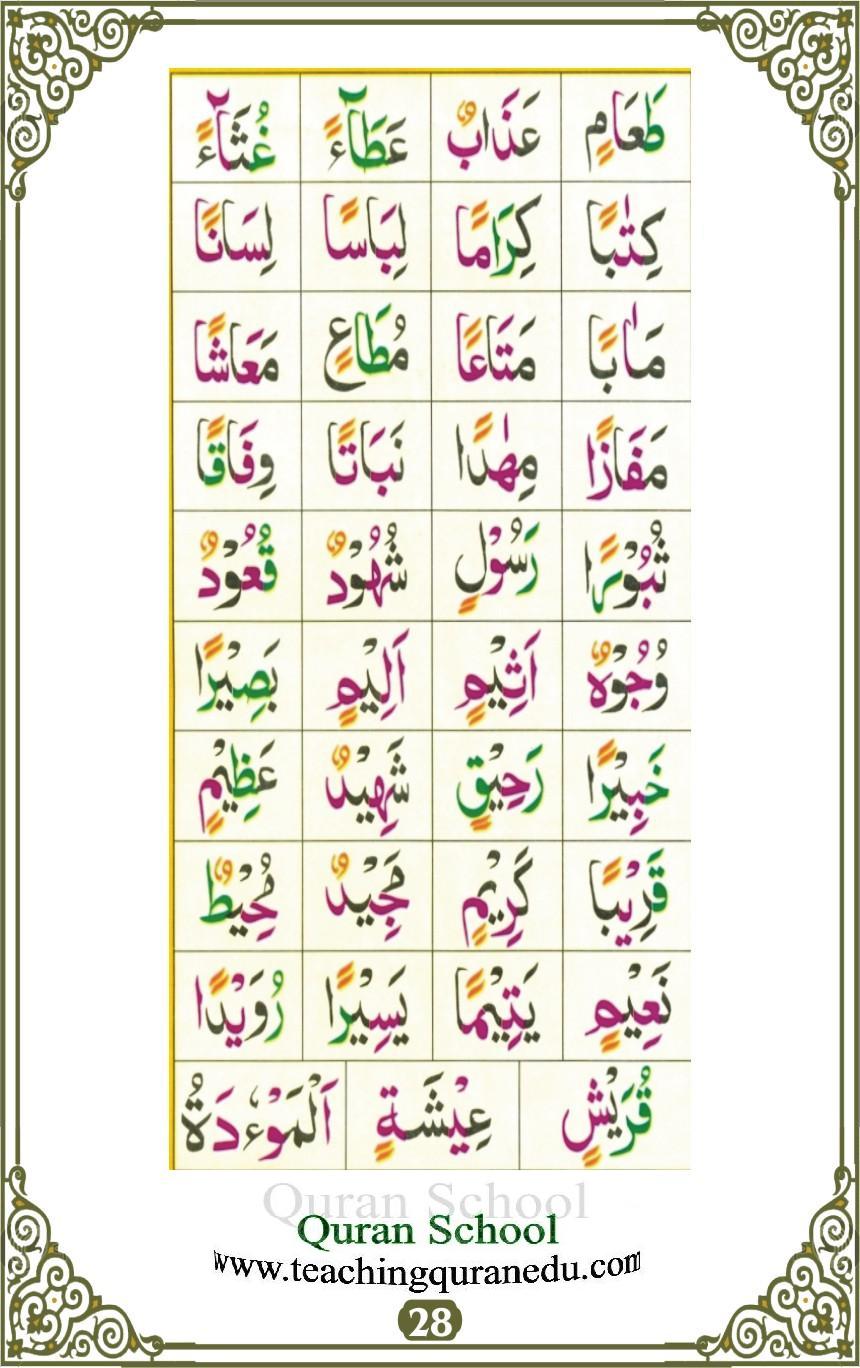 طَعَامٍ عَذَابٌ عَطَآءً غُثَآءً
كِتٰبًا كِرَامًا لِبَاسًا لِسَانًا
مَاٰبًا مَتَاعًا مُطَاعٍ مَعَاشًا
مَفَازًا مِهٰدًا نَبَاتًا وِفَاقًا
ثُبُوْرًا رَسُوْلٍ شُهُوْدٌ قُعُوْدٌ
وُجُوْهٌ اَثِيْمٍ اَلِيْمٍ بَصِيْرًا
خَبِيْرًا رَحِيْقٍ شَهِيْدٌ عَظِيْمٍ
قَرِيْبًا كَرِيْمٍ مَجِيْدٌ مُحِيْطٌ
نَعِيْمٍ يَتِيْمًا يَسِيْرًا رُوَيْدًا
قُرَيْشٍ عِيْشَةٍ اَلْمَوْءٗدَةُ
Quran School
Quran School
www.teachingquranedu.com
28